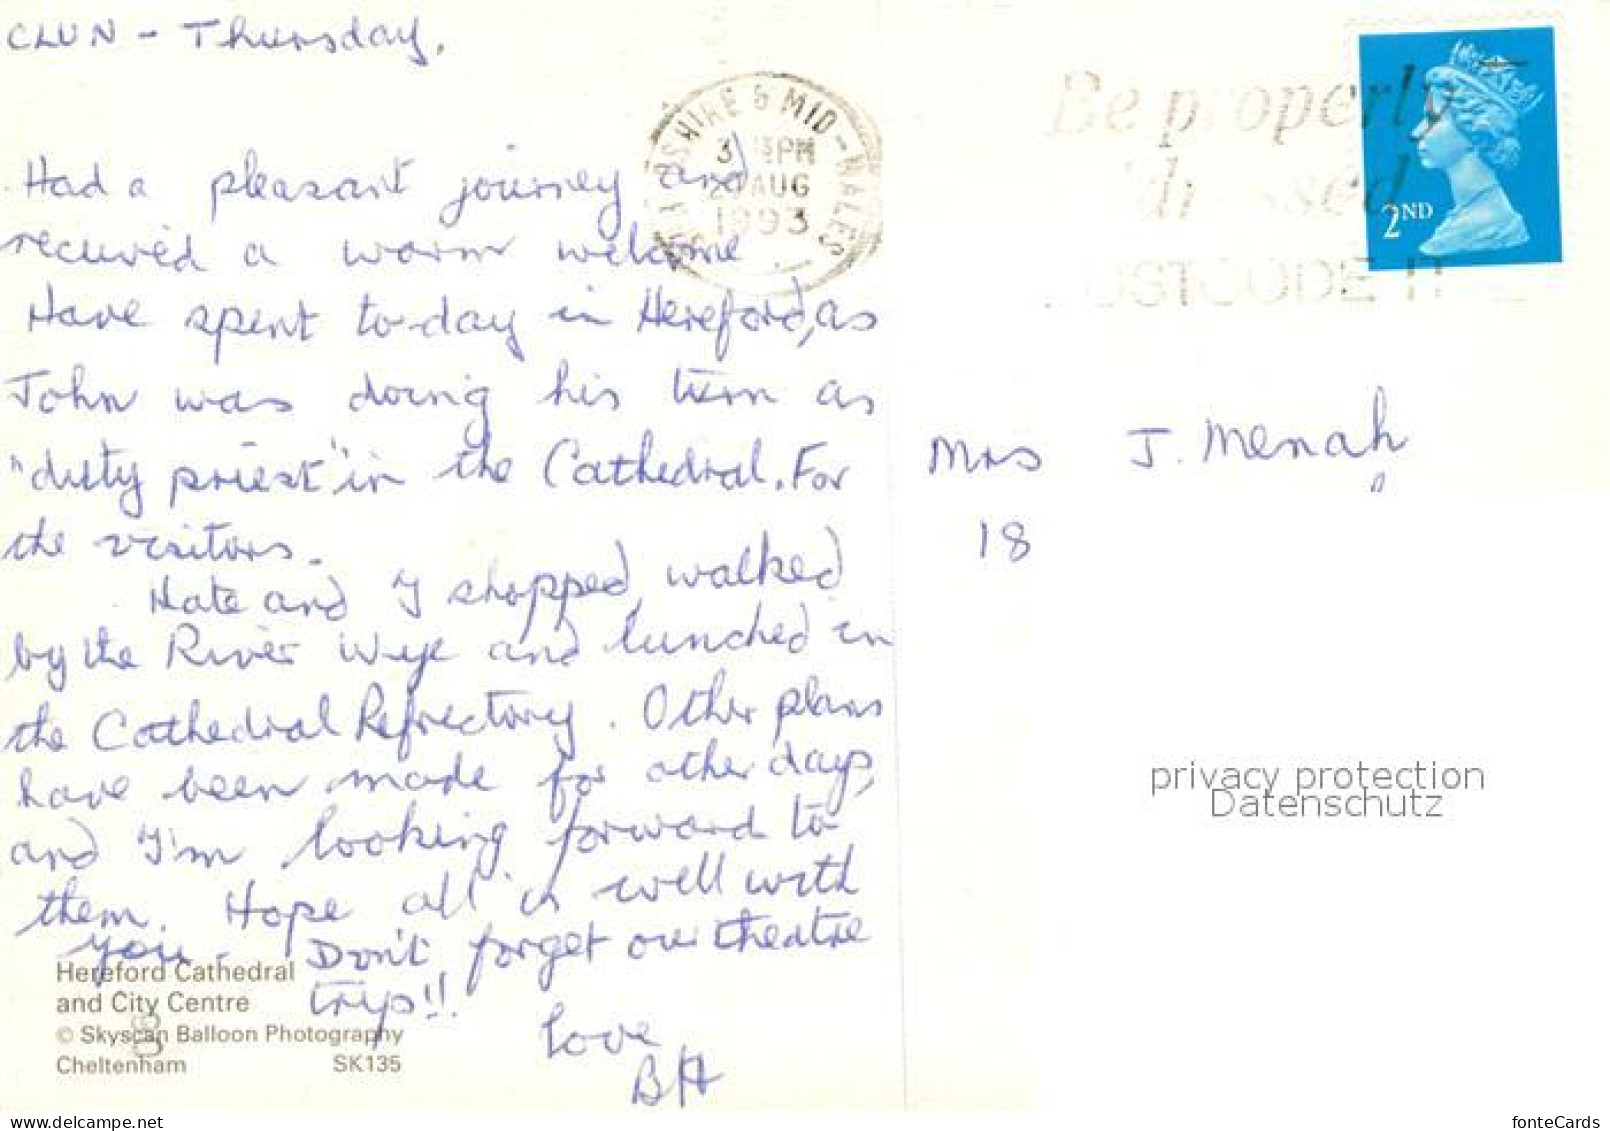 CLUN - Thursday.
Had a pleasant journey and
received a warm welcome
Have spent to-day in Hereford, as
John was doing his turn as
"duty priest" in the Cathedral. For
the visitors.
Kate and I shopped, walked
by the River Wye and lunched in
the Cathedral Refrectory. Other plans
have been made for other days,
and I'm looking forward to
them. Hope all is well with
you. Don't forget our theatre
trips!!
love
BH
Hereford Cathedral
and City Centre
© Skyscan Balloon Photography
Cheltenham SK135
SHIRE & MID-WALES
3 15PM
AUG
1993
Be properly
POSTCODE IT
2ND
Mrs J. Menah
18
privacy protection
Datenschutz
www.delcampe.net
fonteCards